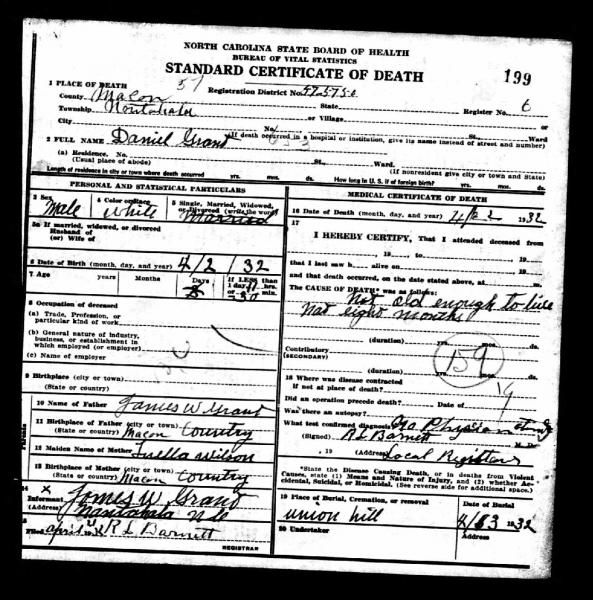 NORTH CAROLINA STATE BOARD OF HEALTH
BUREAU OF VITAL STATISTICS
STANDARD CERTIFICATE OF DEATH
199
1 PLACE OF DEATH 57
Registration District No. 57-575-0
County Macon State Register No. 6
Township Nantahala or Village
City St., Ward
(If death occurred in a hospital or institution, give its name instead of street and number)
2 FULL NAME Daniel Grant
(a) Residence. No. St., Ward.
(Usual place of abode) (If nonresident give city or town and State)
Length of residence in city or town where death occurred yrs. mos. ds. How long in U. S. if of foreign birth? yrs. mos. ds.
PERSONAL AND STATISTICAL PARTICULARS
3 Sex Male
4 Color or Race White
5 Single, Married, Widowed, or Divorced (write the word) Married
5a If married, widowed, or divorced
Husband of
(or) Wife of
6 Date of Birth (month, day, and year) 4/2/32
7 Age years Months Days
If LESS than
1 day hrs.
or min.
8 Occupation of deceased
(a) Trade, Profession, or
particular kind of work
(b) General nature of industry,
business, or establishment in
which employed (or employer)
(c) Name of employer
9 Birthplace (city or town)
(State or country)
10 Name of Father James W Grant
11 Birthplace of Father (city or town)
(State or country) Macon Country
12 Maiden Name of Mother Luella Wilson
13 Birthplace of Mother (city or town)
(State or country) Macon Country
14 X
Informant James W Grant
Nantahala N C
15 Filed april 32 R L Barnett
REGISTRAR
MEDICAL CERTIFICATE OF DEATH
16 Date of Death (month, day, and year) 4/2 1932
17
I HEREBY CERTIFY, That I attended deceased from
, 19 , to , 19
that I last saw h alive on , 19
and that death occurred, on the date stated above, at m.
The CAUSE OF DEATH* was as follows:
Not old enough to live
Not eight months
(duration) yrs. mos. ds.
Contributory
(SECONDARY)
159
(duration) yrs. mos. ds.
18 Where was disease contracted
if not at place of death?
Did an operation precede death? Date of
Was there an autopsy?
What test confirmed diagnosis? No Physician
(Signed) R L Barnett M. D.
, 19 (Address) Local Registrar
*State the Disease Causing Death, or in deaths from Violent
Causes, state (1) Means and Nature of Injury, and (2) whether Ac-
cidental, Suicidal, or Homicidal. (See reverse side for additional space.)
19 Place of Burial, Cremation, or removal Date of Burial
union hill 4/3 1932
20 Undertaker Address